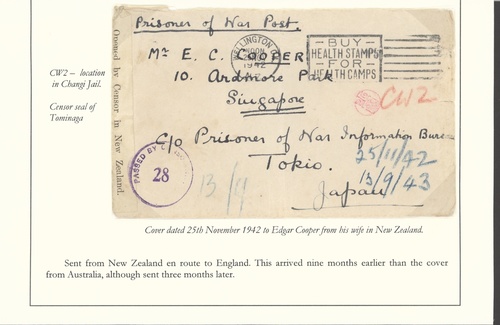 Prisoner of War Post.
WELLINGTON
1942
BUY
HEALTH STAMPS
FOR
HEALTH CAMPS
Mr E. C. COOPER
10. Ardmore Park
Singapore
CW2
c/o Prisoner of War Information Bureau
Tokio.
Japan
25/11/42
13/9/43
13/9
PASSED BY
28
Opened by Censor in New Zealand.
CW2 – location
in Changi Jail.
Censor seal of
Tominaga
Cover dated 25th November 1942 to Edgar Cooper from his wife in New Zealand.
Sent from New Zealand en route to England. This arrived nine months earlier than the cover
from Australia, although sent three months later.